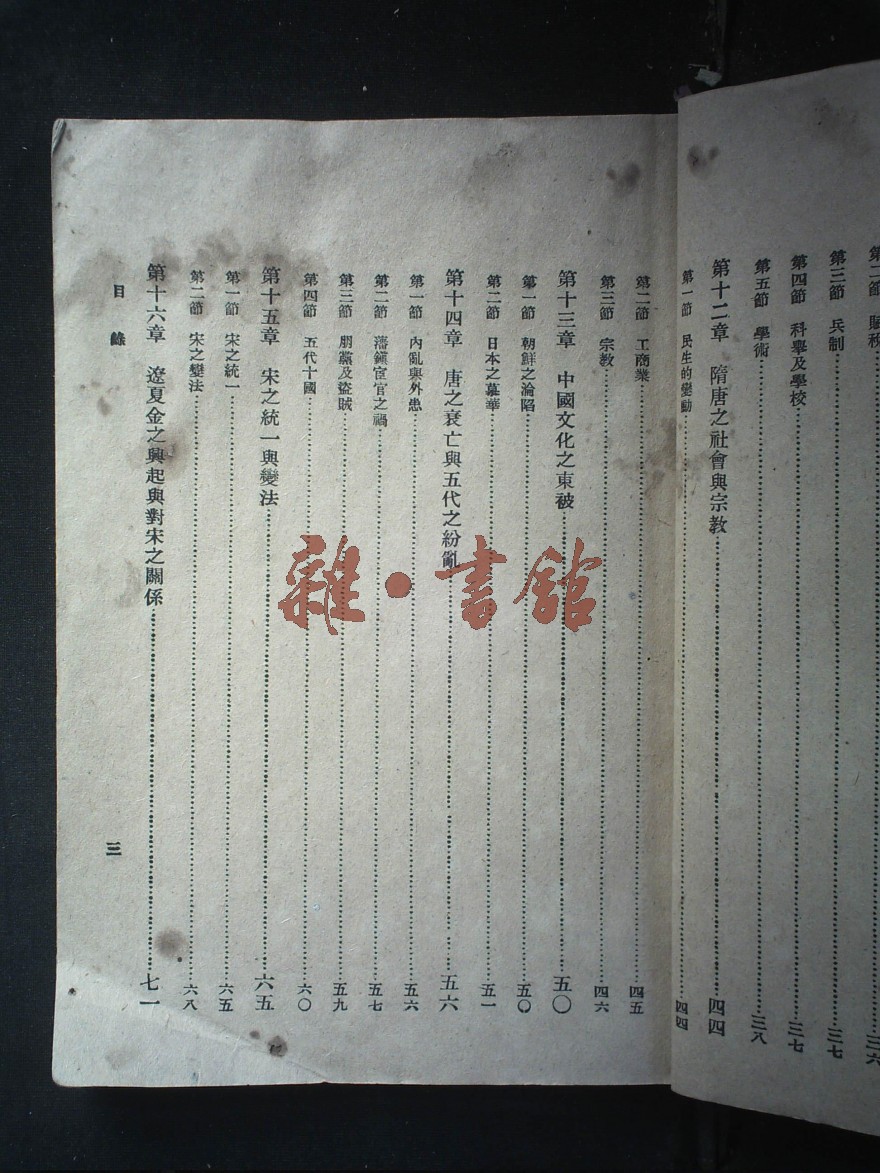 第二節 賦稅……三六
第三節 兵制……三七
第四節 科舉及學校……三七
第五節 學術……三八
第十二章 隋唐之社會與宗教……四四
第一節 民生的變動……四四
第二節 工商業……四五
第三節 宗教……四六
第十三章 中國文化之東被……五〇
第一節 朝鮮之淪陷……五〇
第二節 日本之慕華……五一
第十四章 唐之衰亡與五代之紛亂……五六
第一節 內亂與外患……五六
第二節 藩鎭宦官之禍……五七
第三節 朋黨及盜賊……五九
第四節 五代十國……六〇
第十五章 宋之統一與變法……六五
第一節 宋之統一……六五
第二節 宋之變法……六八
第十六章 遼夏金之興起與對宋之關係……七一
目錄 三
雜·書館